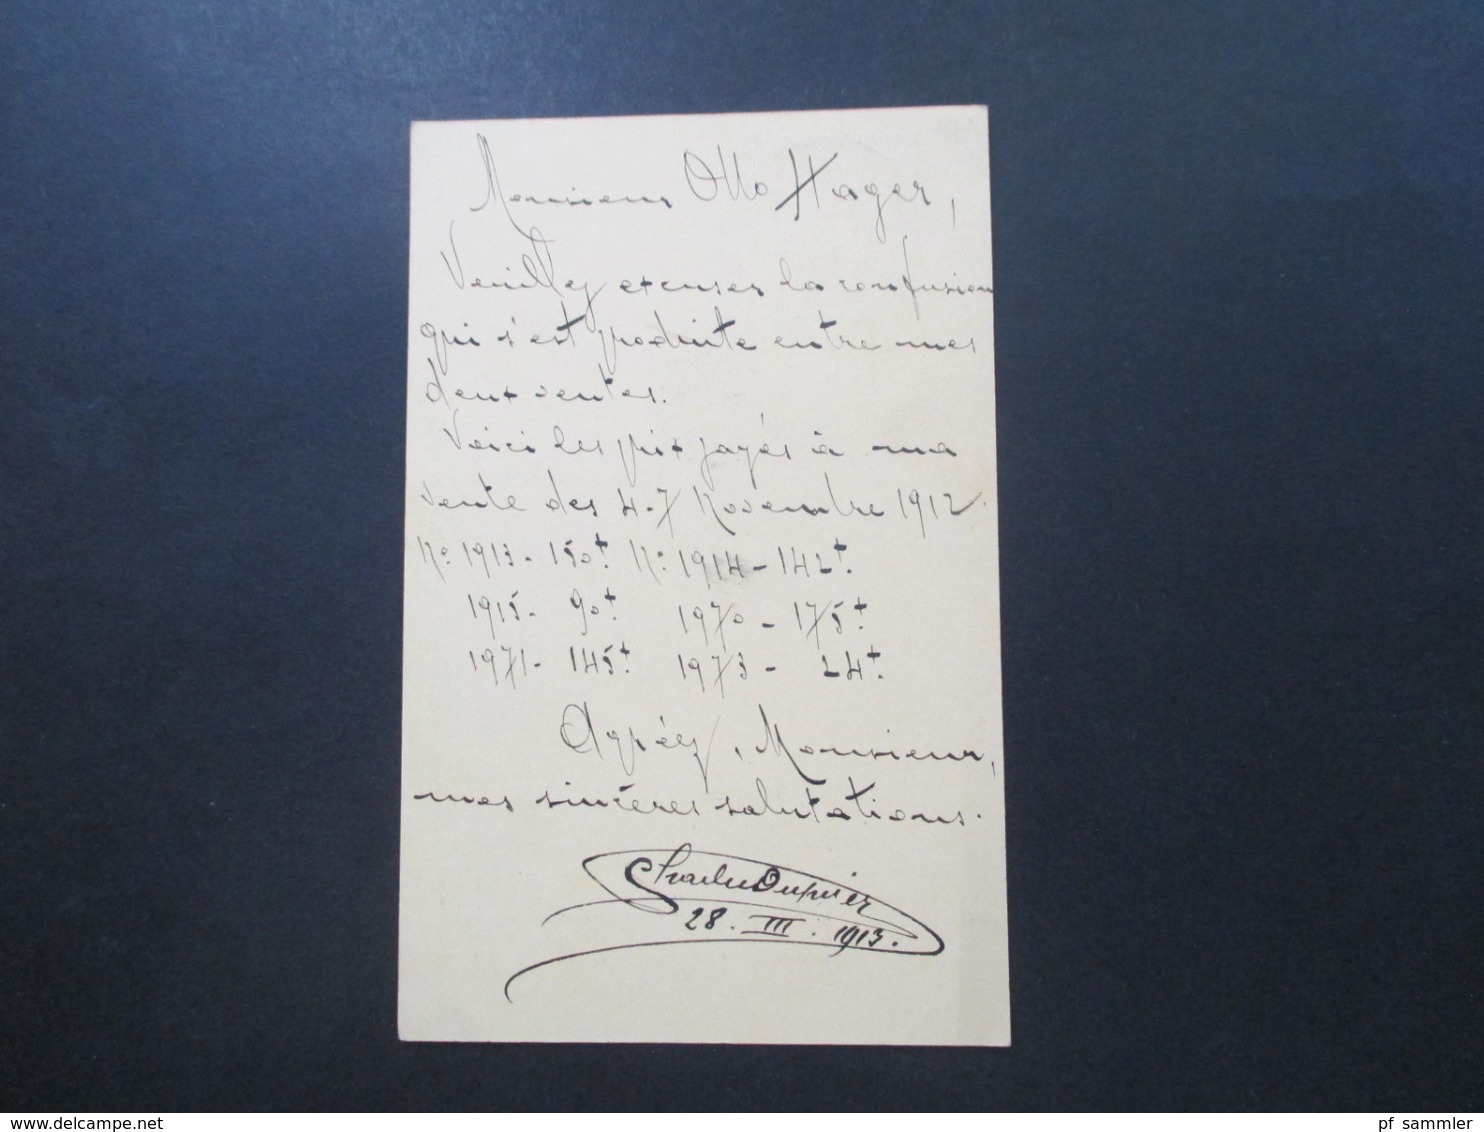 Monsieur Otto Hager,
Veuillez excuser la confusion
qui s'est produite entre mes
deux ventes.
Voici les prix payés à ma
vente des 4-7 Novembre 1912.
No. 1913 - 150 f. No. 1914 - 142 f.
1915 - 90 f. 1970 - 175 f.
1971 - 145 f. 1973 - 24 f.
Agréez, Monsieur,
mes sincères salutations.
Charles Dupriez
28. III. 1913.
www.delcampe.net
pf_sammler